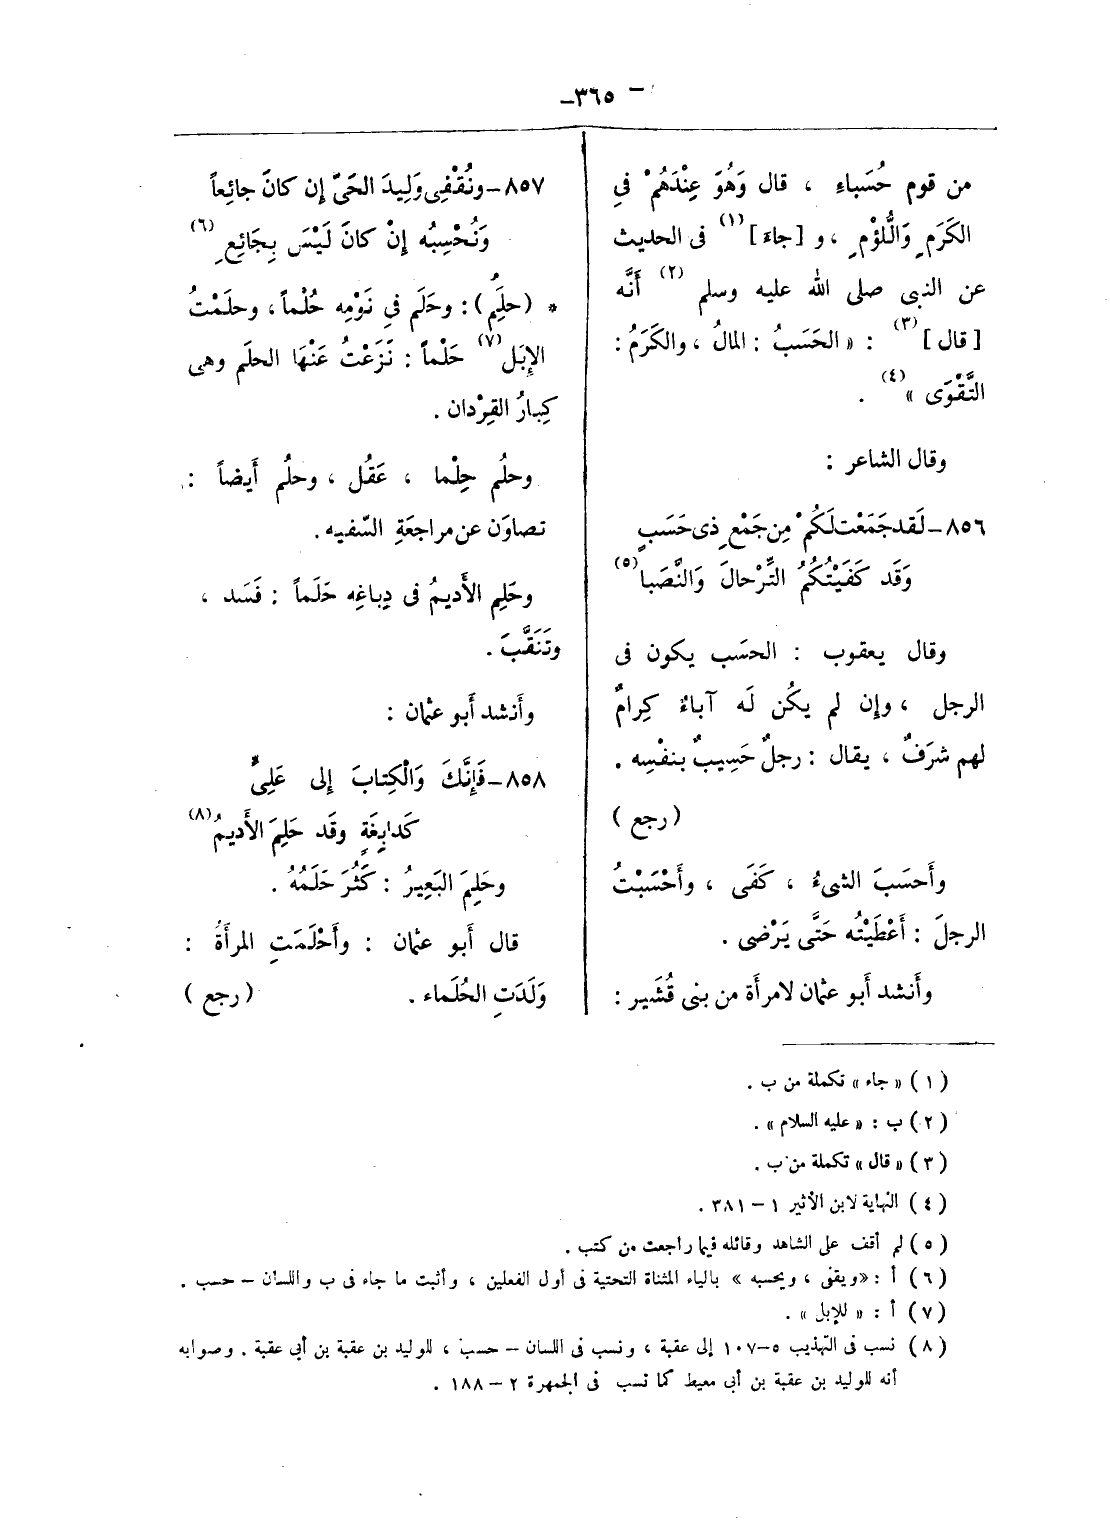 – ٣٦٥ –
من قوم حُسَباءِ ، قال وَهُوَ عِنْدَهُمْ فى
الكَرَمِ وَالُّلؤْمِ ، و [جاءَ] (١) فى الحديث
عن النبى صلى الله عليه وسلم (٢) أَنَّه
[قال] (٣) : « الحَسَبُ : المالُ ، والكَرَمُ :
التَّقْوَى » (٤) .
وقال الشاعر :
٨٥٦ – لَقد جَمَعْت لَكُمْ مِن جَمْعِ ذى حَسَبٍ
وَقَد كَفَيْتُكُمُ التِّرْحالَ وَالنَّصَبا (٥)
وقال يعقوب : الحسَب يكون فى
الرجل ، وإن لم يكُن لَه آباءٌ كِرامٌ
لهم شرَفٌ ، يقال : رجلٌ حَسِيبٌ بنفْسِه .
( رجع )
وأَحسَبَ الشىءُ ، كَفَى ، وأَحْسَبْتُ
الرجلَ : أَعْطَيْتُه حَتَّى يَرْضى .
وأَنشد أَبو عثمان لامرأَة من بنى قُشَير :
٨٥٧ – ونُقْفِى وَلِيدَ الحَىِّ إِن كانَ جائِعاً
وَنُحْسِبُه إِنْ كانَ لَيْسَ بِجَائِعِ (٦)
* (حلِمُ) : وحَلَم فى نَوْمِه حُلْماً ، وحلَمْتُ
الإِبَل (٧) حَلْماً : نَزَعْتُ عَنْهَا الحلَم وهى
كِبارُ القِرْدان .
وحلُم حِلْما ، عَقُل ، وحلُم أَيضاً :
تصاوَن عن مراجعَةِ السّفيه .
وحَلِم الأَديمُ فى دِباغِه حَلَماً : فَسَد ،
وتَنَقَّبَ .
وأَنشد أَبو عثمان :
٨٥٨ – فَإِنَّكَ وَالْكِتابَ إِلى عَلِىٍّ
كَدابِغَةٍ وقَد حَلِمَ الأَديمُ (٨)
وحَلِمَ البَعِيرُ : كَثُرَ حَلَمُهُ .
قال أَبو عثمان : وأَحْلَمَتِ المرأَةُ :
وَلَدَتِ الحُلَماء . ( رجع )
(١) « جاء » تكملة من ب .
(٢) ب : « عليه السلام » .
(٣) « قال » تكملة من ب .
(٤) النهاية لابن الأثير ١ – ٣٨١ .
(٥) لم أقف على الشاهد وقائله فيما راجعت من كتب .
(٦) أ : « ويقفى ، ويحسبه » بالياء المثناة التحتية فى أول الفعلين ، وأثبت ما جاء فى ب واللسان – حسب .
(٧) أ : « للإبل » .
(٨) نسب فى التهذيب ٥–١٠٧ إلى عقبة ، ونسب فى اللسان – حسب ، للوليد بن عقبة بن أبى عقبة . وصوابه
أنه للوليد بن عقبة بن أبى معيط كما نسب فى الجمهرة ٢ – ١٨٨ .